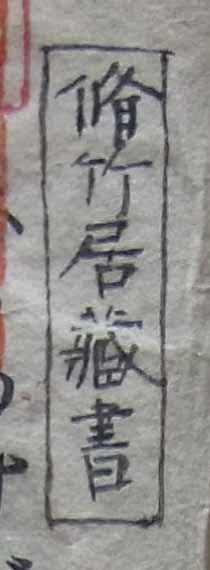 脩竹居藏書